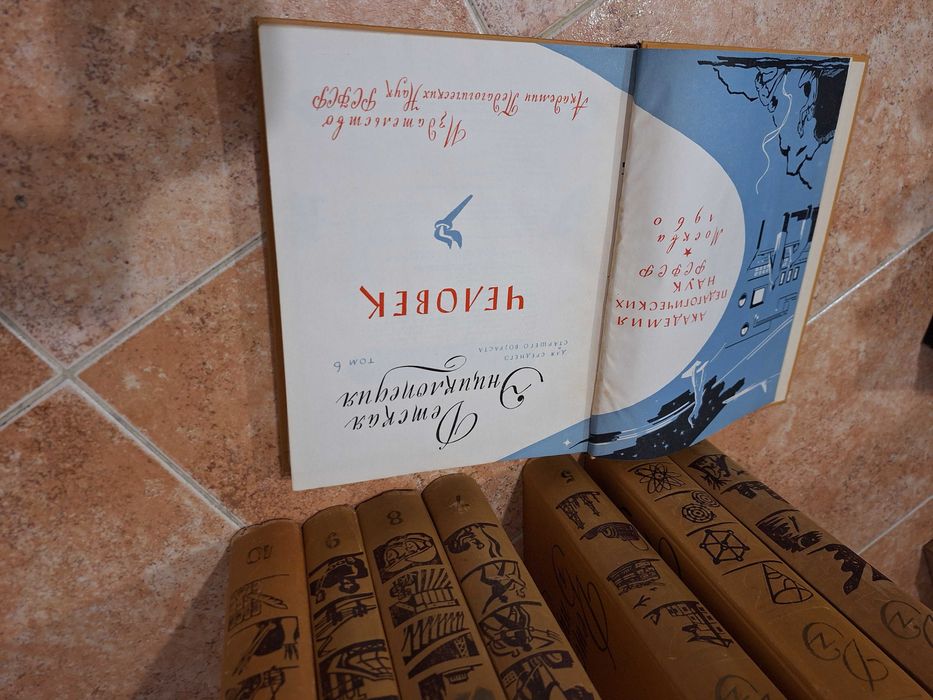 АКАДЕМИЯ
ПЕДАГОГИЧЕСКИХ
НАУК
РСФСР
★
Москва
1960
Детская
Энциклопедия
ДЛЯ СРЕДНЕГО
И СТАРШЕГО ВОЗРАСТА
ТОМ 6
ЧЕЛОВЕК
Издательство
Академии Педагогических Наук РСФСР
10
9
8
7
5